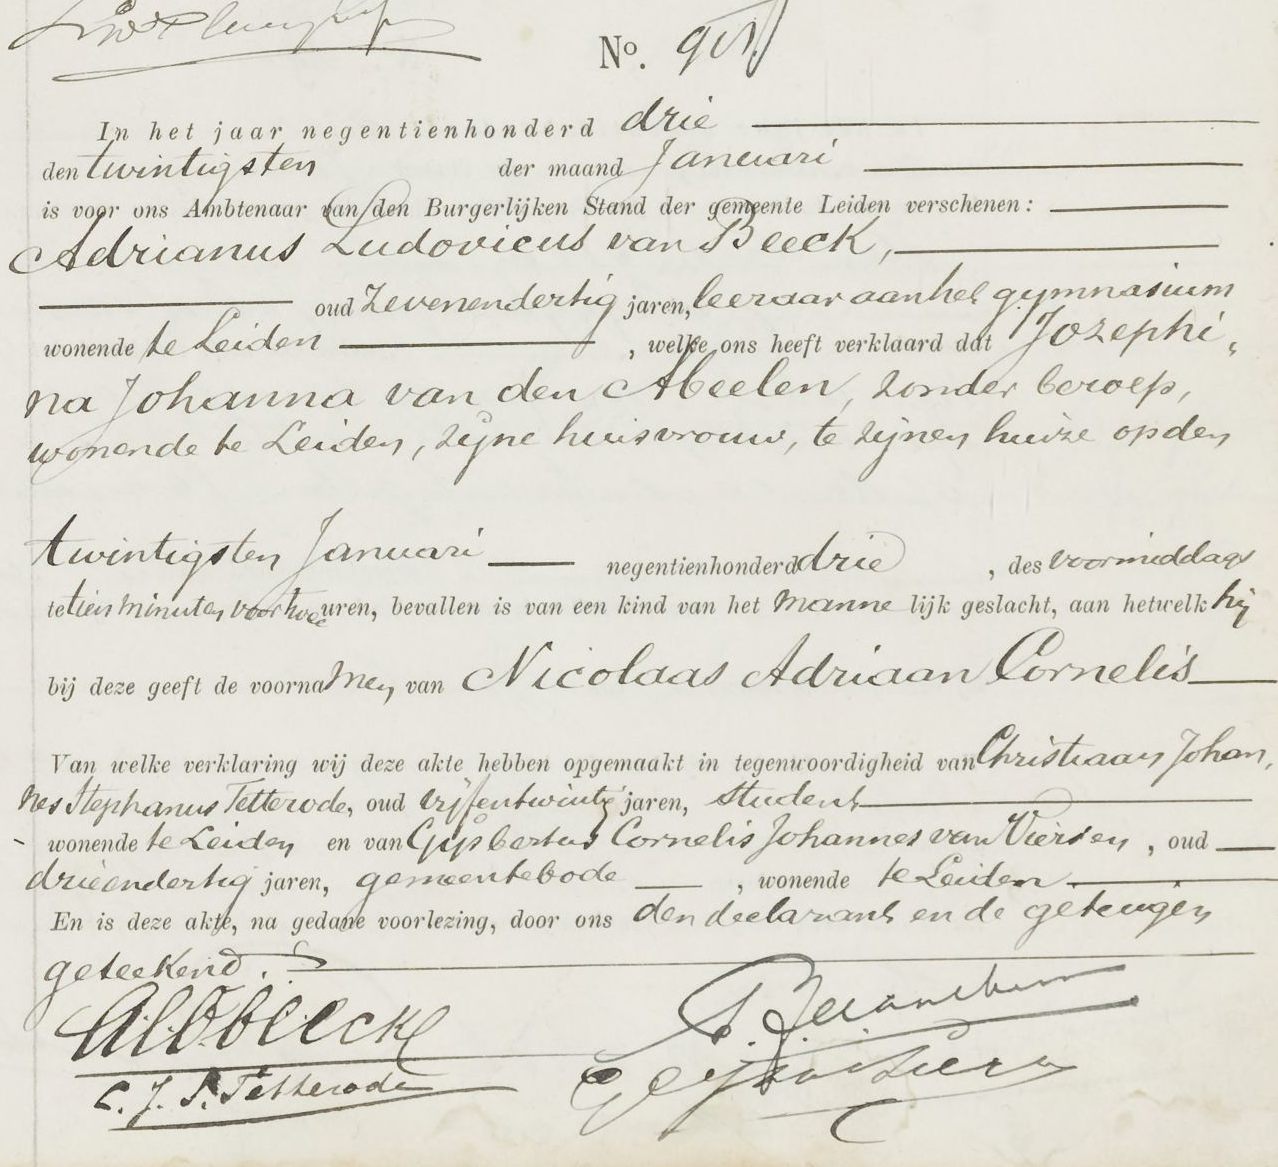 Nº. 98.
In het jaar negentienhonderd drie
den twintigsten der maand Januari
is voor ons Ambtenaar van den Burgerlijken Stand der gemeente Leiden verschenen:
Adrianus Ludovicus van Beeck,
oud zevenendertig jaren, leeraar aan het gymnasium
wonende te Leiden , welke ons heeft verklaard dat Jozephi-
na Johanna van den Abeelen, zonder beroep,
wonende te Leiden, zijne huisvrouw, te zijnen huize op den
twintigsten Januari negentienhonderd drie , des voormiddags
te tien minuten voor twee uren, bevallen is van een kind van het mannelijk geslacht, aan hetwelk hij
bij deze geeft de voornamen van Nicolaas Adriaan Cornelis
Van welke verklaring wij deze akte hebben opgemaakt in tegenwoordigheid van Christiaan Johan-
nes Stephanus Tetterode, oud vijfentwintig jaren, student
wonende te Leiden en van Gijsbertus Cornelis Johannes van Viersen, oud
drieendertig jaren, gemeentebode , wonende te Leiden
En is deze akte, na gedane voorlezing, door ons den declarant en de getuigen
geteekend.
ALvBeeck
C. J. S. Tetterode